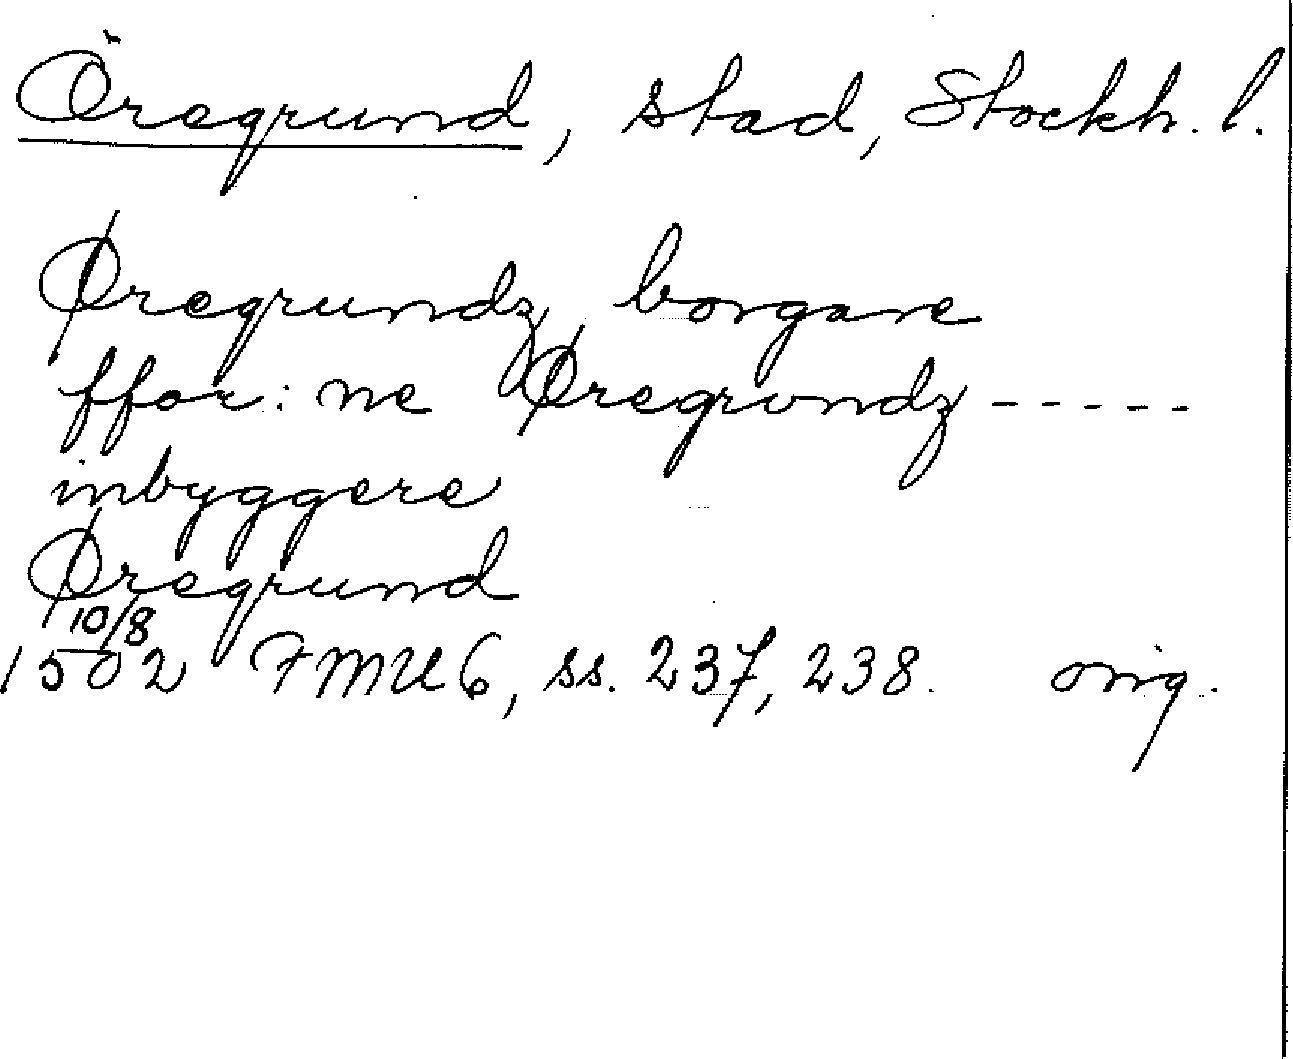 Öregrund, stad, Stockh. l.
Øregrundz borgare
ffor: ne Øregrvndz - - - - -
inbyggere
Øregrund
10/8
1502 FMU 6, ss. 237, 238. orig.